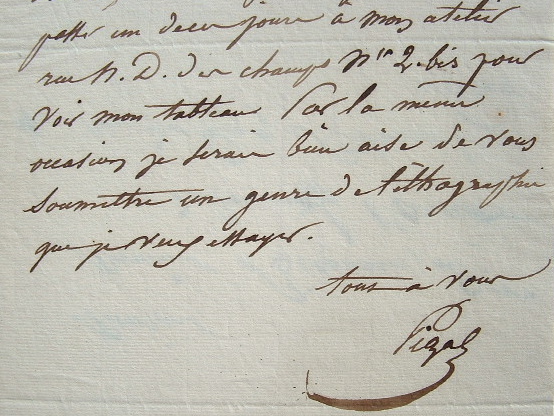 passer un de ces jours à mon atelier
rue N. D. des champs N° 2. bis pour
voir mon tableau Par la même
occasion je serais bien aise de vous
soumettre un genre de lithographie
que je veux essayer.
tout à vous
Pigal